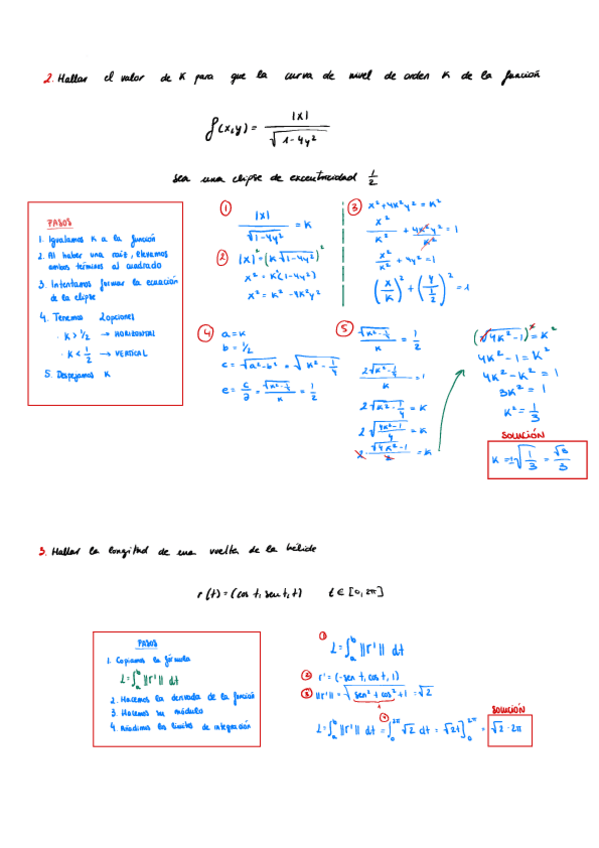 2. Hallar el valor de K para que la curva de nivel de orden K de la función
f(x,y) = |x| / √(1-4y²)
sea una elipse de excentricidad 1/2
PASOS
1. Igualamos K a la función
2. Al haber una raíz, elevamos
ambos terminos al cuadrado
3. Intentamos formar la ecuación
de la elipse
4. Tenemos 2 opciones
· K > 1/2 → HORIZONTAL
· K < 1/2 → VERTICAL
5. Despejamos K
① |x| / √(1-4y²) = K
② (x)² = (K √(1-4y²))²
x² = K²(1-4y²)
x² = K² - 4K²y²
③ x² + 4K²y² = K²
x²/K² + 4K²y²/K² = 1
x²/K² + 4y² = 1
(x/K)² + (y/(1/2))² = 1
④ a = K
b = 1/2
c = √(a²-b²) = √(K² - 1/4)
e = c/a = √(K² - 1/4)/K = 1/2
⑤ √(K² - 1/4)/K = 1/2
2√(K² - 1/4)/K = 1
2√(K² - 1/4) = K
2√((4K²-1)/4) = K
2 · √(4K²-1)/2 = K
(√(4K²-1))² = K²
4K² - 1 = K²
4K² - K² = 1
3K² = 1
K² = 1/3
SOLUCIÓN
K = ±√(1/3) = √3/3
3. Hallar la longitud de una vuelta de la hélide
r(t) = (cos t, sen t, t) t ∈ [0, 2π]
PASOS
1. Copiamos la fórmula
L = ∫ₐᵇ ||r'|| dt
2. Hacemos la derivada de la función
3. Hacemos su módulo
4. Añadimos los límites de integración
① L = ∫ₐᵇ ||r'|| dt
② r' = (-sen t, cos t, 1)
③ ||r'|| = √(sen² + cos² + 1) = √2
1
④
L = ∫ₐᵇ ||r'|| dt = ∫₀^2π √2 dt = √2t]₀^2π =
SOLUCIÓN
√2 · 2π